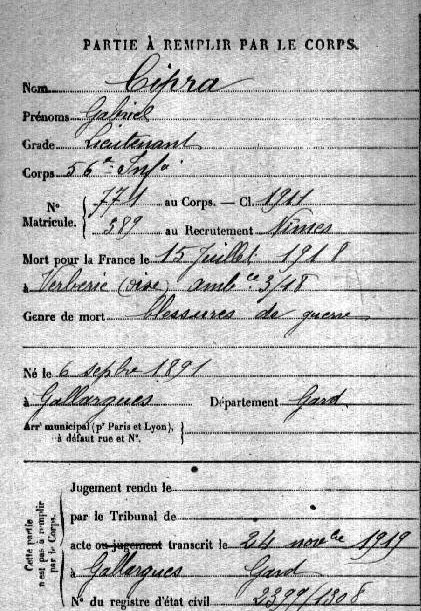 PARTIE À REMPLIR PAR LE CORPS.
Nom Cipra
Prénoms Gabriel
Grade Lieutenant
Corps 56e Infie
N° Matricule. { 771 au Corps. — Cl. 1911
389 au Recrutement Nîmes
Mort pour la France le 15 Juillet 1918
à Verberie (Oise) ambce 3/18
Genre de mort blessures de guerre
Né le 6 septbre 1891
à Gallargues Département Gard
Arrt municipal (pr Paris et Lyon), }
à défaut rue et N°.
Cette partie n'est pas à remplir par le Corps.
Jugement rendu le
par le Tribunal de
acte ou jugement transcrit le 24 novbre 1919
à Gallargues Gard
N° du registre d'état civil 2397/1308